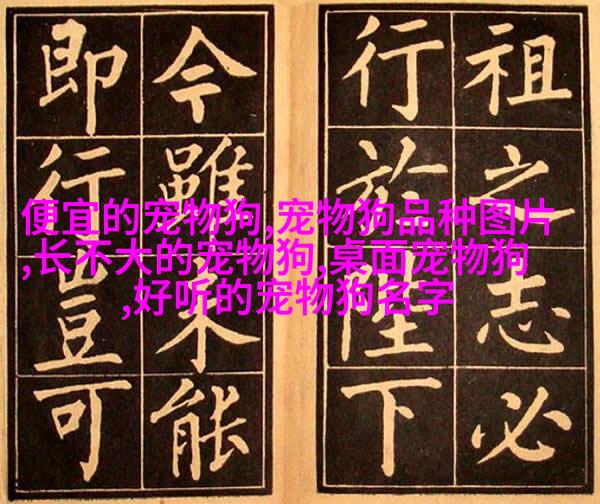 祖之志必
行於陛下
今雖未能
即行豈可
便宜的宠物狗,宠物狗品种图片
,长不大的宠物狗,桌面宠物狗
,好听的宠物狗名字